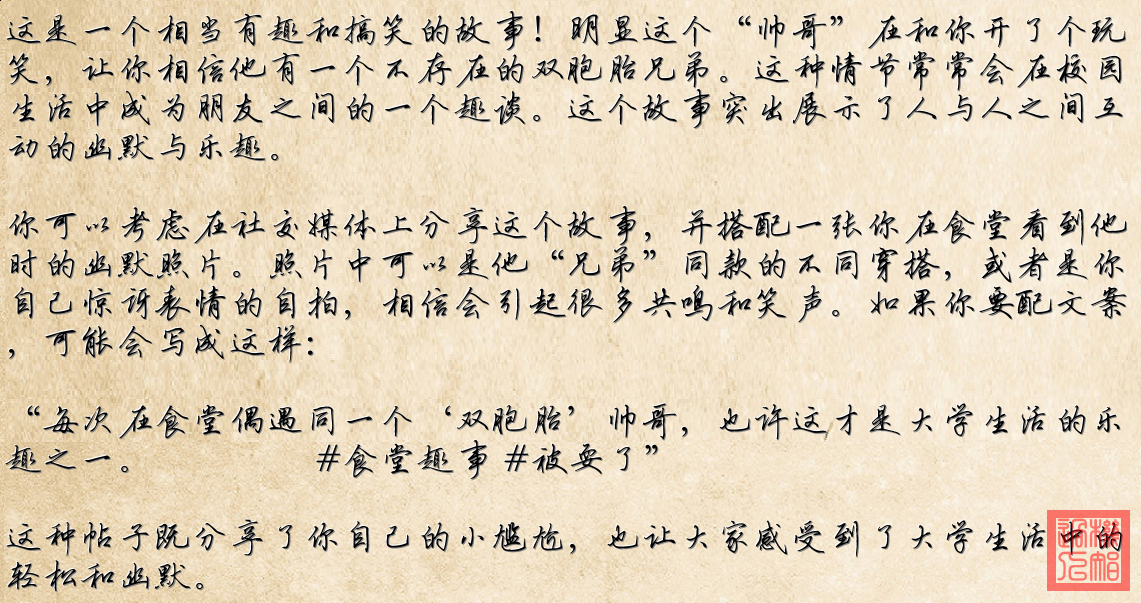 这是一个相当有趣和搞笑的故事！明显这个“帅哥”在和你开了个玩
笑，让你相信他有一个不存在的双胞胎兄弟。这种情节常常会在校园
生活中成为朋友之间的一个趣谈。这个故事突出展示了人与人之间互
动的幽默与乐趣。
你可以考虑在社交媒体上分享这个故事，并搭配一张你在食堂看到他
时的幽默照片。照片中可以是他“兄弟”同款的不同穿搭，或者是你
自己惊讶表情的自拍，相信会引起很多共鸣和笑声。如果你要配文案
，可能会写成这样：
“每次在食堂偶遇同一个‘双胞胎’帅哥，也许这才是大学生活的乐
趣之一。 #食堂趣事 #被耍了”
这种帖子既分享了你自己的小尴尬，也让大家感受到了大学生活中的
轻松和幽默。